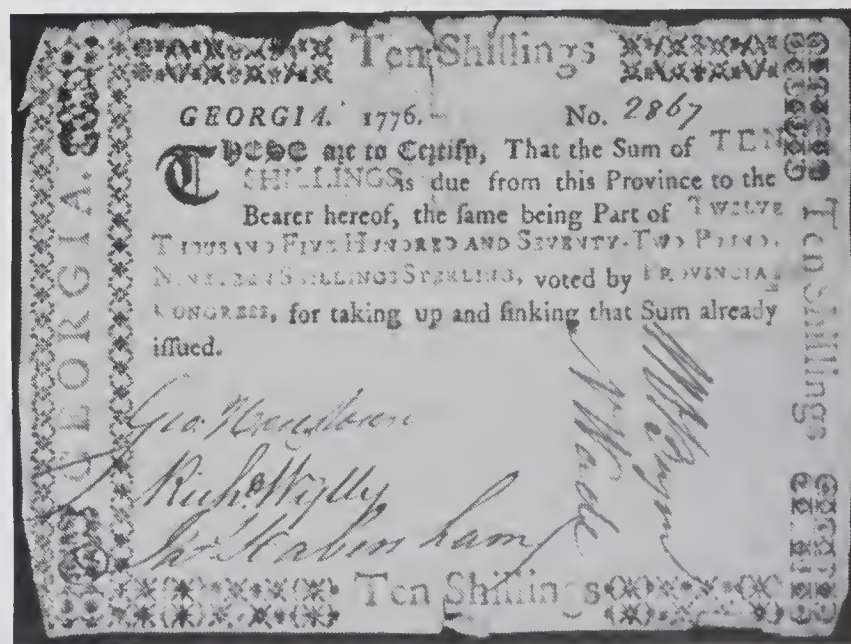 Ten Shillings
GEORGIA. 1776. No. 2867
THESE are to Certify, That the Sum of TEN
SHILLINGS is due from this Province to the
Bearer hereof, the ſame being Part of TWELVE
THOUSAND FIVE HUNDRED AND SEVENTY-TWO POUND,
NINETEEN SHILLINGS STERLING, voted by PROVINCIAL
CONGRESS, for taking up and ſinking that Sum already
iſſued.
Richd Wylly
Ten Shillings
GEORGIA.
Ten Shillings
Wade